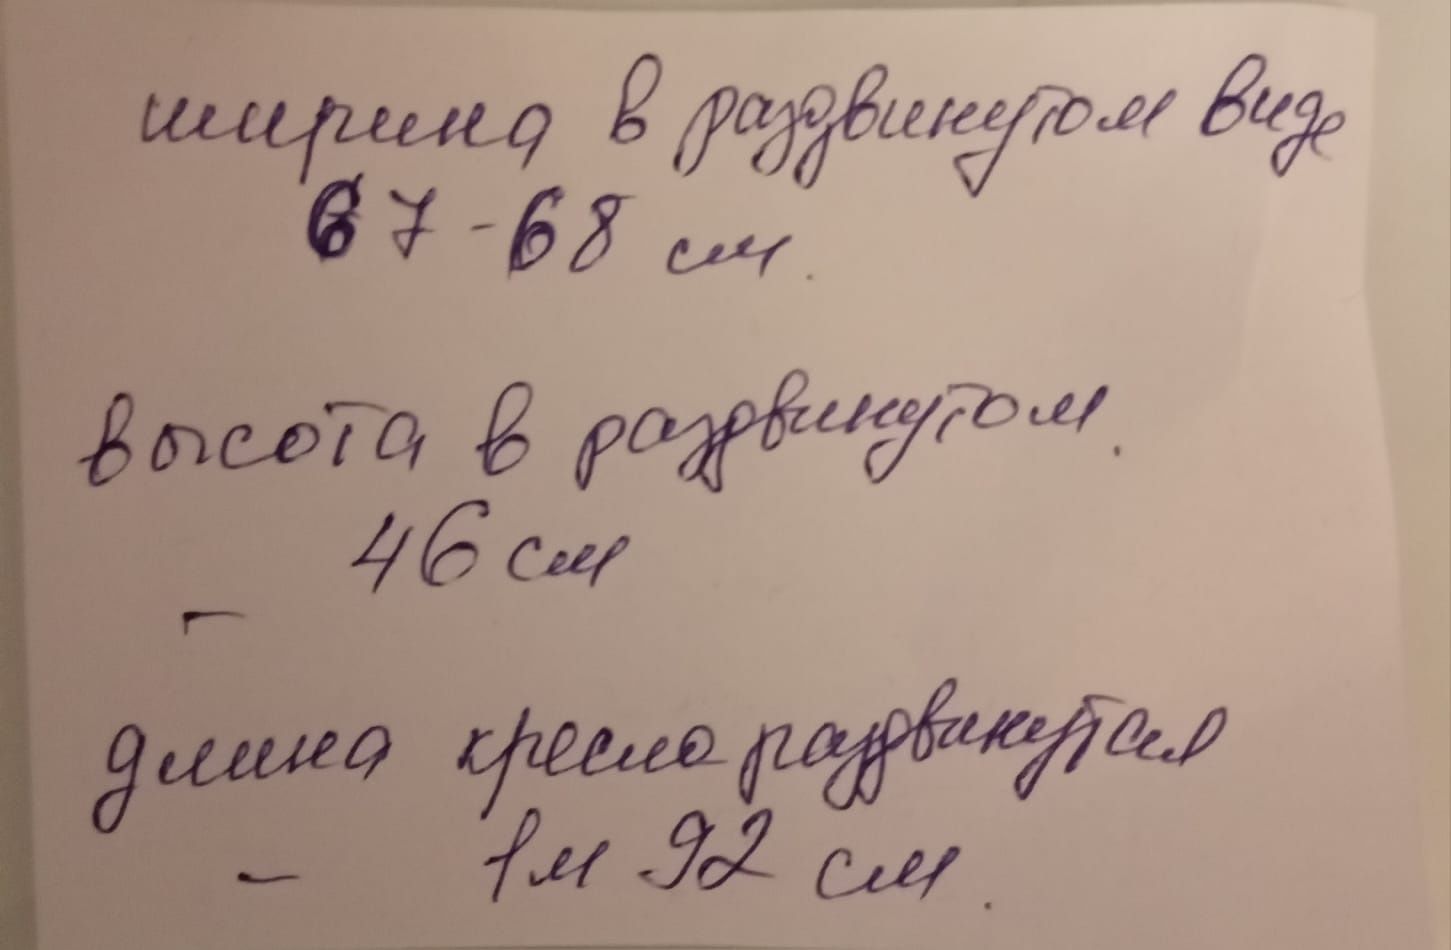 ширина в раздвинутом виде
67-68 см.
высота в раздвинутом.
46 см
-
длина кресло раздвинутая
- 1м 92 см.